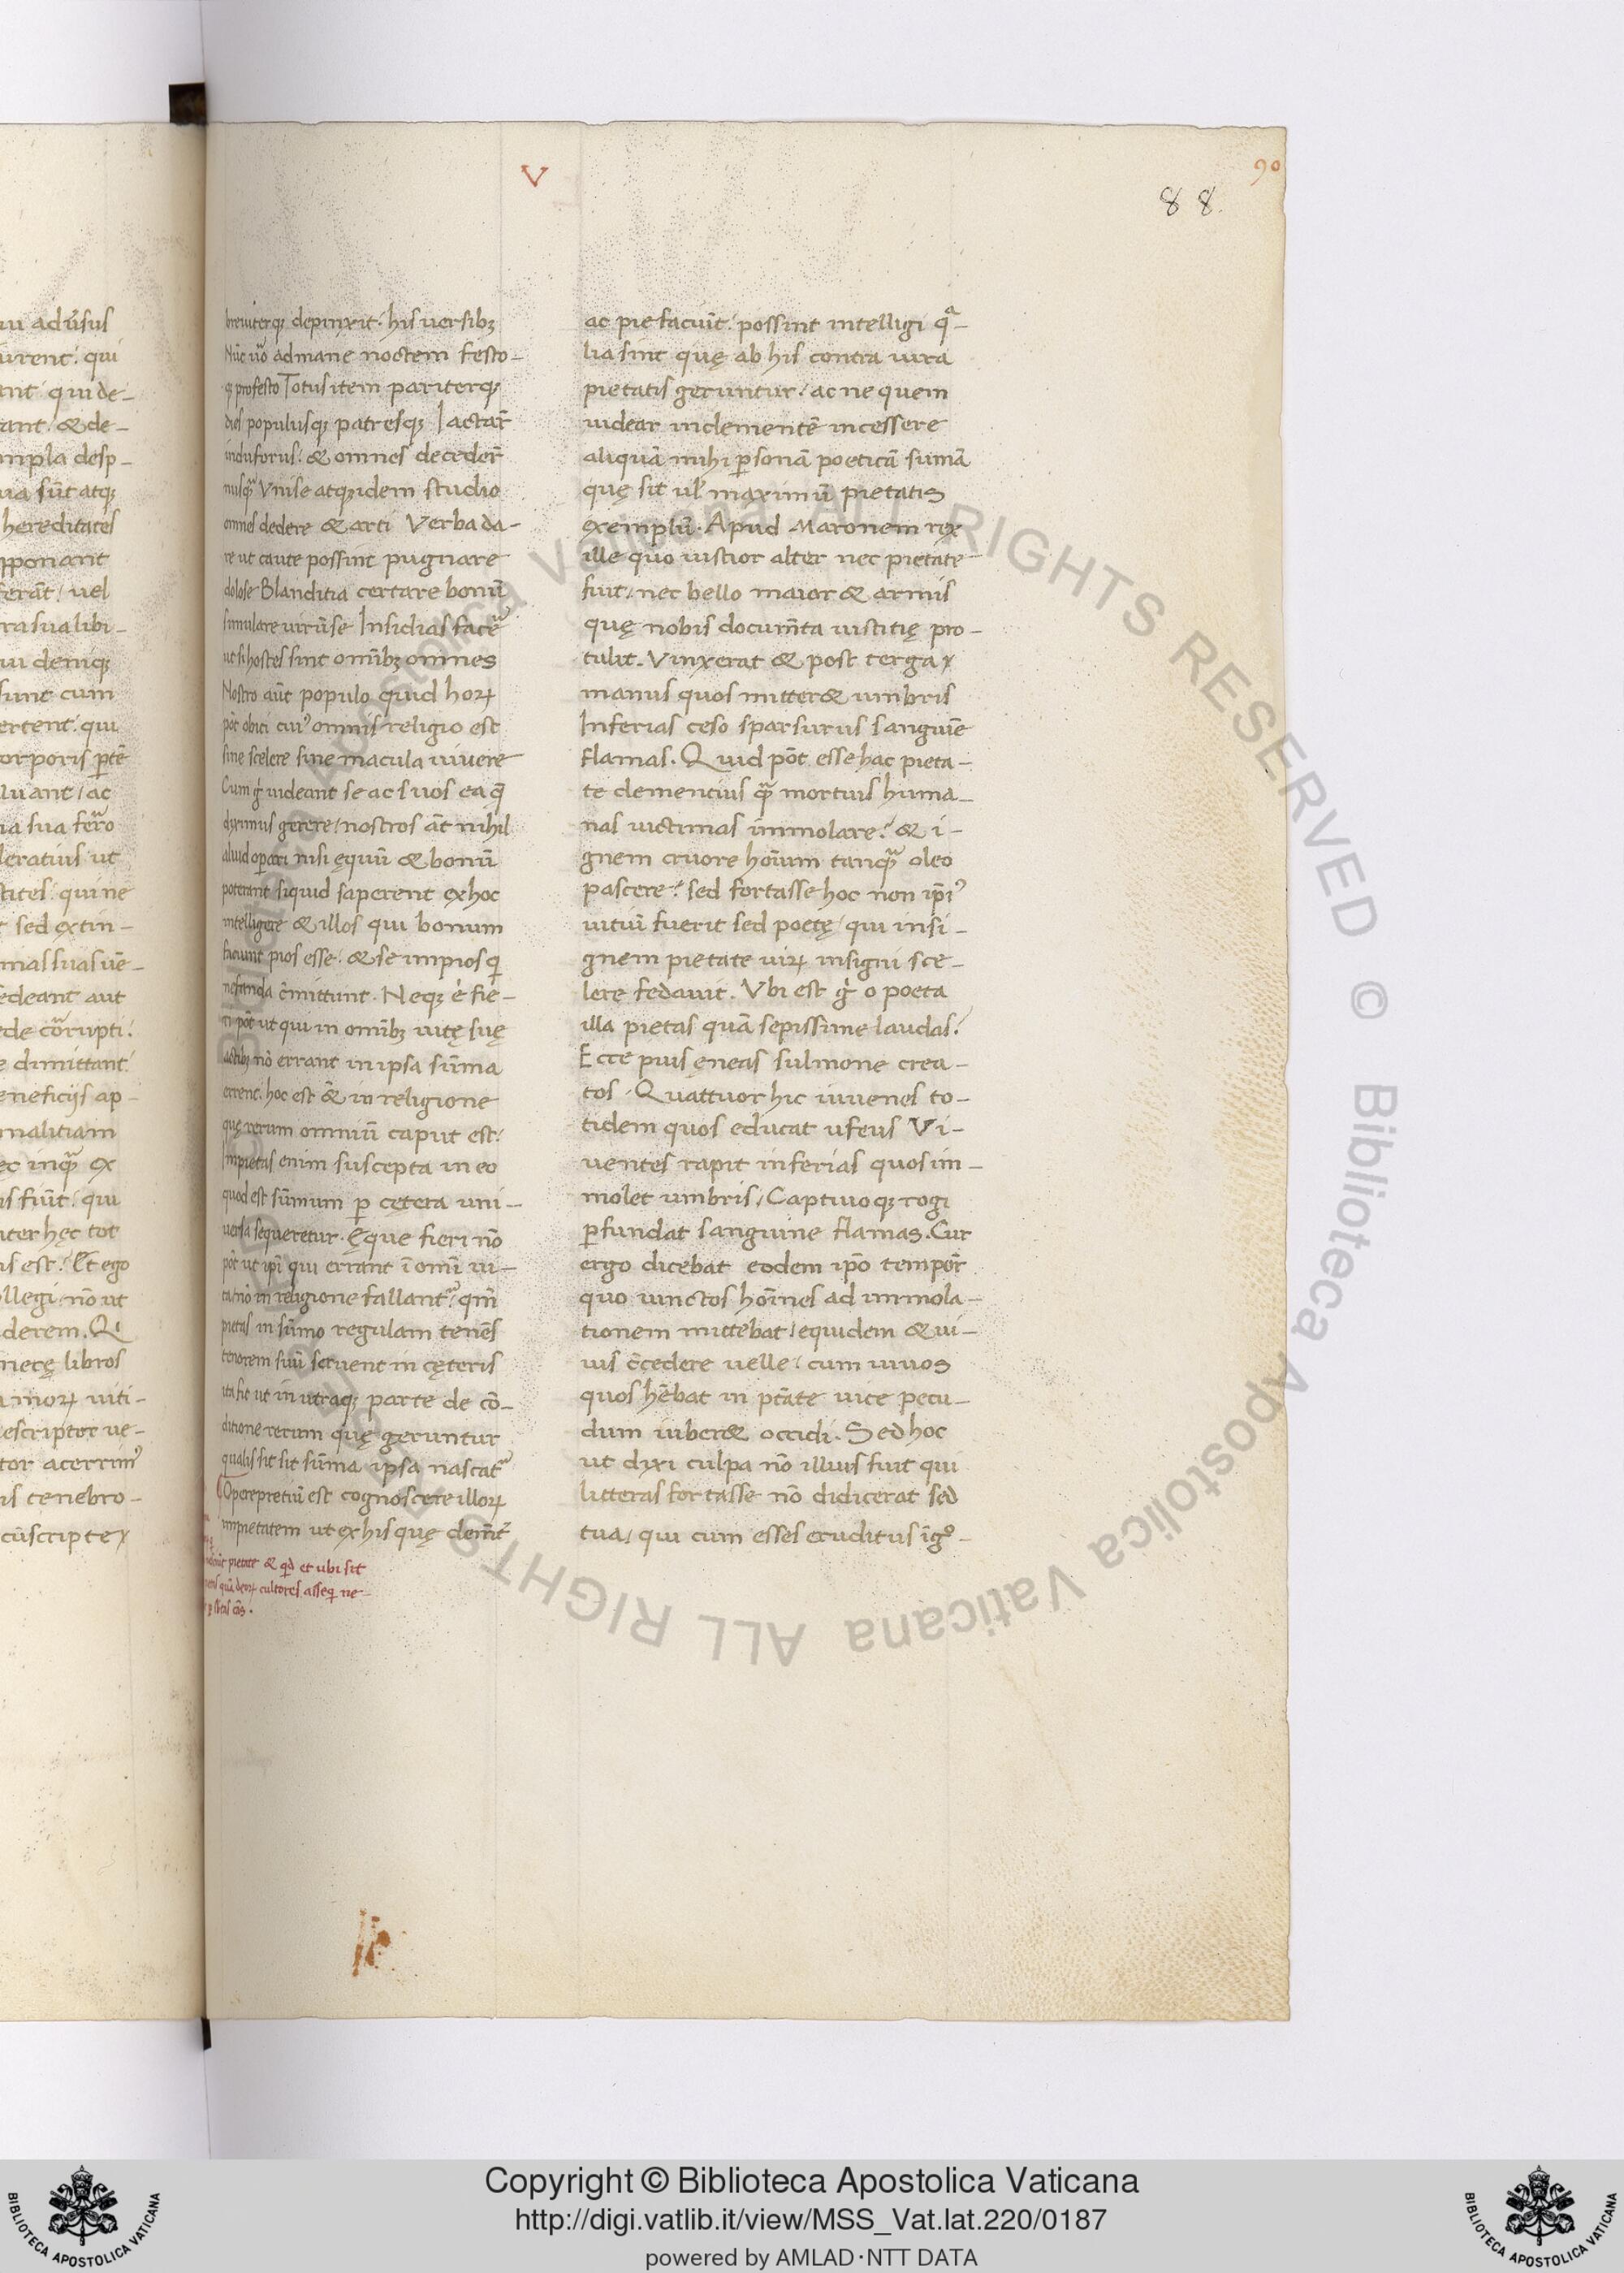 V
90
88.
ui adũsus
urent: qui
ant: qui de-
ant. & de-
mpla desp-
ua sũt atq;
hereditates
pponant
ferãt / uel
ra sua libi-
ui deniq;
sunt cum
ertent: qui
orporis ptẽ
luant / ac
ia sua ferro
leratius ut
tites: qui ne
sed extin-
mas suas uẽ-
edeant aut
ede corrupti:
e dimittant:
eneficijs ap-
malitiam
ec inquã ex
s fuũt: qui
ter hęc tot
is est? Et ego
llegi: nõ ut
derem. Q
netę libros
morꝝ uiti-
escriptor ue-
tor acerrimꝰ
is tenebro-
cũscripte
breuiterq; depinxit: his uersib;
Nũc uo ad mane noctem festo-
q; profesto Totus item pariterq;
dies populusq; patresq; Iactar̃
indu forus: & omnes decedeř
nusq̃ Vni se atq; idem studio
omnes dedere & arti Verba da-
re ut caute possint pugnare
dolose Blanditia certare bonũ
simulare uirũ se Insidias facẽ
ut si hostes sint omĩb; omnes
Nostro aũt populo quid horꝝ
põt obici cuiꝰ omnis religio est
sine scelere sine macula uiuere
Cum gͥ uideant se ac suos ea q̃
diximus gerere / nostros aũt nihil
aliud operari nisi ęquũ & bonũ
poterant siquid saperent ex hoc
intelligere & illos qui bonum
faciunt pios esse: & se impios qͥ
nefanda cõmittunt. Neq; eͥ fie-
ri põt ut qui in omĩb; uitę suę
actib; nõ errant in ipsa sũma
errent. hoc est & in religione
quę rerum omniũ caput est:
Impietas enim suscepta in eo
quod est sũmum p cętera uni-
uersa sequeretur. Ęque fieri nõ
põt ut ipĩ qui errant ĩ omĩ ui-
ta nõ in religione fallantᷣ: qm̃
pietas in sũmo regulam tenẽs
tenorem suũ seruent in cęteris
ita fit ut in utraq; parte de cõ-
ditione rerum quę geruntur
qualis sit sit sũma ipsa nascatᷣ
Operepretiũ est cognoscere illorꝝ
impietatem ut ex his quę clemẽt
pietate & qd et ubi sit
deorꝝ cultores asseqͥ ne-
ac pie faciũt: possint intelligi qᷓ-
lia sint quę ab his contra iura
pietatis geruntur / ac ne quem
uidear inclementẽ incessere
aliquã mihi psonã poeticã sumã
quę sit ul̃ maximũ pietatis
exemplũ. Apud Maronem rex
ille quo iustior alter nec pietate
fuit / nec bello maior & armis
quę nobis documẽta iustitię pro-
tulit. Vinxerat & post terga
manus quos mitter& umbris
Inferias ceso sparsurus sanguiẽ
flamas. Quid põt esse hac pieta-
te clementius q̃ mortuis huma-
nas uictimas immolare? & i-
gnem cruore hoĩum tanq̃ oleo
pascere? sed fortasse hoc non ipĩꝰ
uitiũ fuerit sed poetę / qui insi-
gnem pietate uirꝝ insigni sce-
lere fedauit. Vbi est gͥ o poeta
illa pietas quã sepissime laudas?
Ecce pius eneas sulmone crea-
tos. Quattuor hic iuuenes to-
tidem quos educat ufeus Vi-
uentes rapit inferias quos im-
molet umbris / Captiuoq; rogi
pfundat sanguine flamas. Cur
ergo dicebat eodem ipõ tempoř
quo uinctos hoĩnes ad immola-
tionem mittebat / equidem & ui-
uis cõcedere uelle: cum uiuos
quos hẽbat in ptãte uice pecu-
dum iuber& occidi. Sed hoc
ut dixi culpa nõ illius fuit qui
litteras fortasse nõ didicerat sed
tua / qui cum esses eruditus ĩgᵒ-
Biblioteca Apostolica Vaticana ALL RIGHTS RESERVED ©
Copyright © Biblioteca Apostolica Vaticana
http://digi.vatlib.it/view/MSS_Vat.lat.220/0187
powered by AMLAD·NTT DATA
BIBLIOTECA APOSTOLICA VATICANA
BIBLIOTECA APOSTOLICA VATICANA